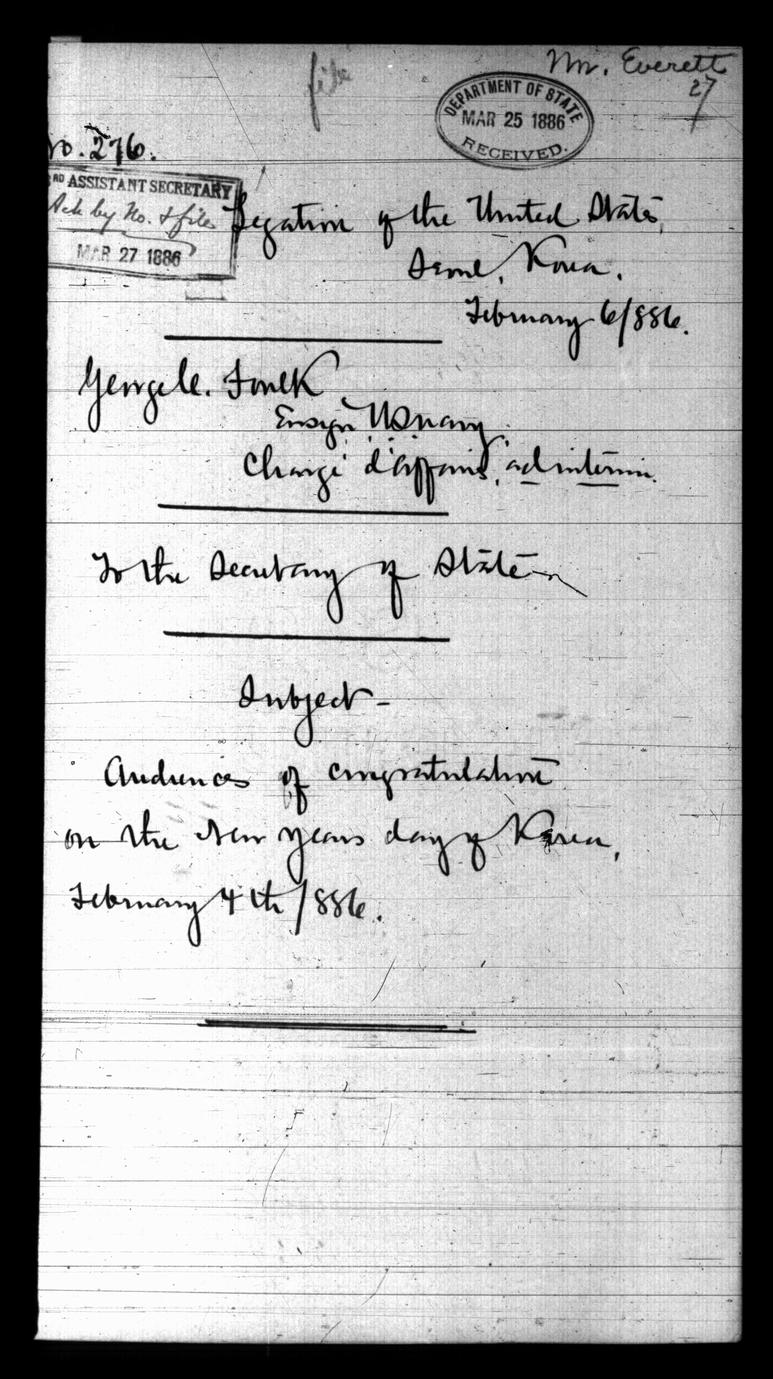 file
Mr. Everett
27
DEPARTMENT OF STATE
MAR 25 1886
RECEIVED.
No. 276.
RD ASSISTANT SECRETARY
Ack by No. & file
MAR 27 1886
Legation of the United States,
Seoul, Korea.
February 6/886.
George C. Foulk
Ensign USNavy.
Chargé d'affaires, ad interim.
To the Secretary of State
Subject -
Audiences of congratulation
on the New Years day of Korea,
February 4th/886.